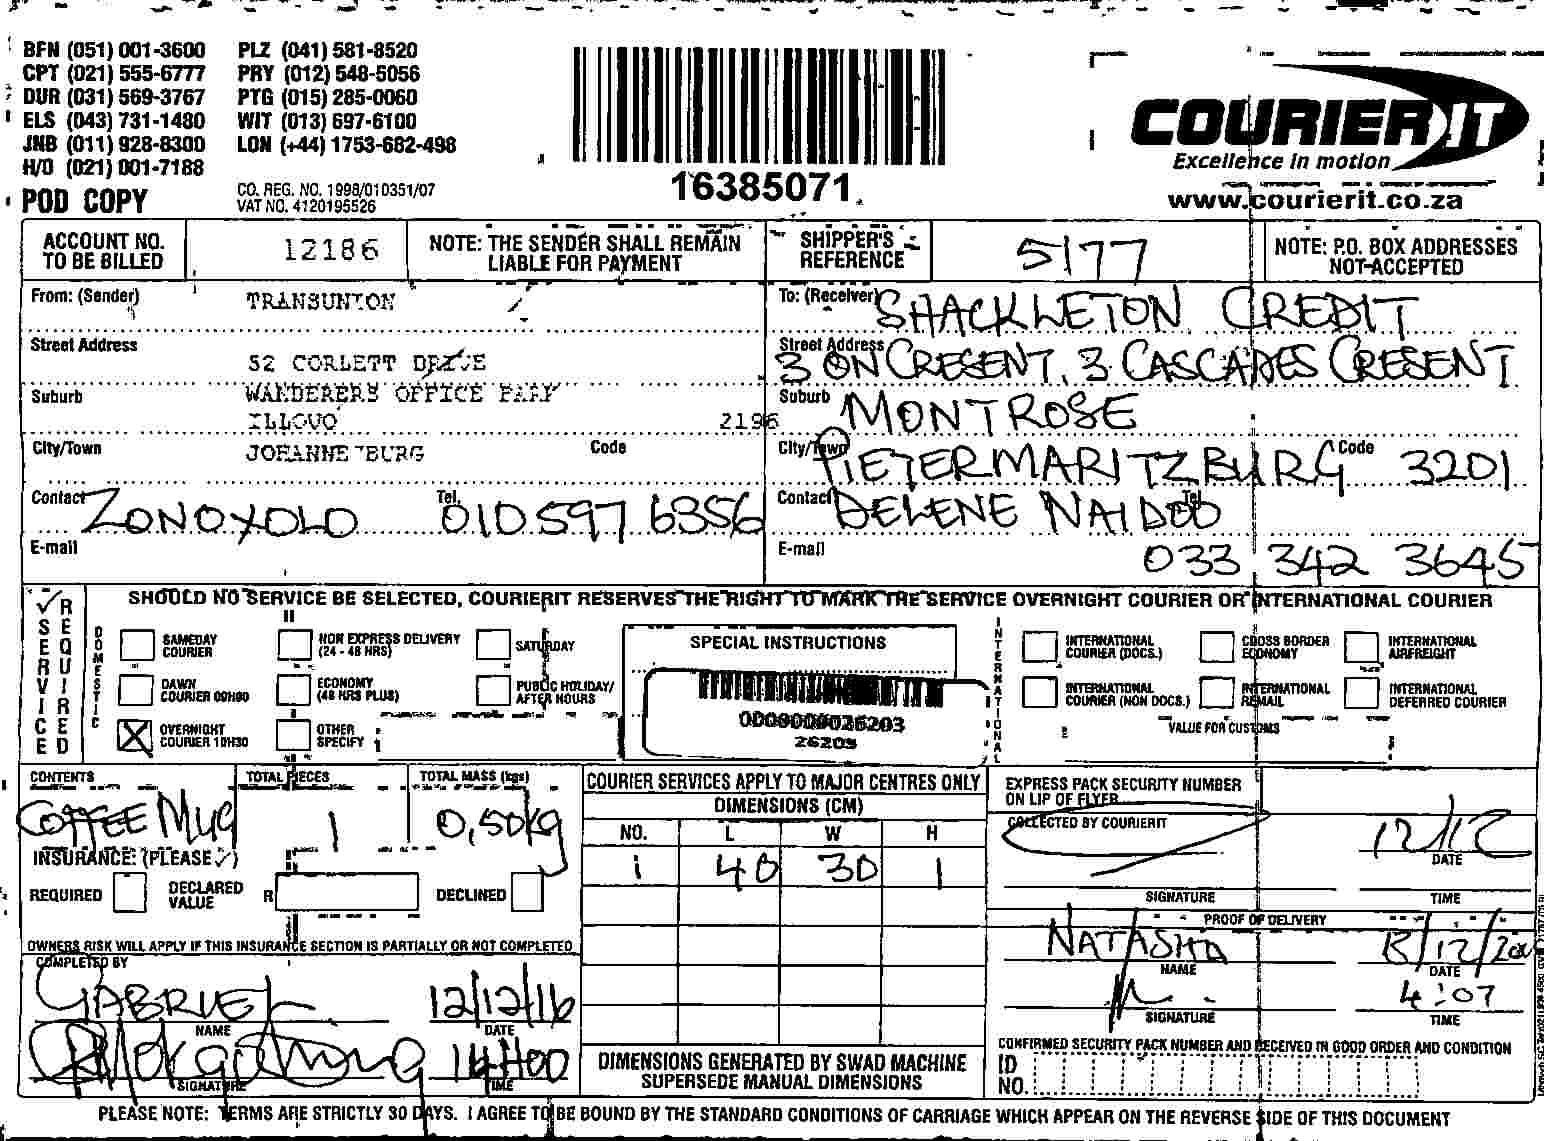 BFN (051) 001-3600 PLZ (041) 581-8520
CPT (021) 555-6777 PRY (012) 548-5056
DUR (031) 569-3767 PTG (015) 285-0060
ELS (043) 731-1480 WIT (013) 697-6100
JNB (011) 928-8300 LON (+44) 1753-682-498
H/O (021) 001-7188
POD COPY
CO. REG. NO. 1998/010351/07
VAT NO. 4120195526
16385071
COURIER IT
Excellence in motion
www.courierit.co.za
ACCOUNT NO. TO BE BILLED 12186
NOTE: THE SENDER SHALL REMAIN LIABLE FOR PAYMENT
SHIPPER'S REFERENCE 5177
NOTE: P.O. BOX ADDRESSES NOT-ACCEPTED
From: (Sender) TRANSUNION
Street Address 52 CORLETT DRIVE
Suburb WANDERERS OFFICE PARK
ILLOVO 2196
City/Town JOHANNE BURG Code
Contact ZONOXOLO Tel. 010 597 6356
E-mail
To: (Receiver) SHACKLETON CREDIT
Street Address 3 ON CRESENT, 3 CASCADES CRESENT
Suburb MONTROSE
City/Town PIETERMARITZBURG Code 3201
Contact DELENE NAIDOO Tel
E-mail 033 342 3645
SERVICE REQUIRED
SHOULD NO SERVICE BE SELECTED, COURIERIT RESERVES THE RIGHT TO MARK THE SERVICE OVERNIGHT COURIER OR INTERNATIONAL COURIER
DOMESTIC
SAMEDAY COURIER
NON EXPRESS DELIVERY (24 - 48 HRS)
SATURDAY
DAWN COURIER 09H00
ECONOMY (48 HRS PLUS)
PUBLIC HOLIDAY/ AFTER HOURS
OVERNIGHT COURIER 10H30
OTHER SPECIFY
SPECIAL INSTRUCTIONS
0000000026203
26203
INTERNATIONAL
INTERNATIONAL COURIER (DOCS.)
CROSS BORDER ECONOMY
INTERNATIONAL AIRFREIGHT
INTERNATIONAL COURIER (NON DOCS.)
INTERNATIONAL REMAIL
INTERNATIONAL DEFERRED COURIER
VALUE FOR CUSTOMS
CONTENTS COFFEE MUG
TOTAL PIECES 1
TOTAL MASS (kgs) 0,50kg
INSURANCE: (PLEASE ✓)
REQUIRED DECLARED VALUE R DECLINED
OWNERS RISK WILL APPLY IF THIS INSURANCE SECTION IS PARTIALLY OR NOT COMPLETED
COURIER SERVICES APPLY TO MAJOR CENTRES ONLY
DIMENSIONS (CM)
NO. L W H
1 40 30 1
DIMENSIONS GENERATED BY SWAD MACHINE SUPERSEDE MANUAL DIMENSIONS
COMPLETED BY
GABRIEL 12/12/16
NAME DATE
14H00
SIGNATURE TIME
EXPRESS PACK SECURITY NUMBER ON LIP OF FLYER
COLLECTED BY COURIERIT
12/12
DATE
SIGNATURE TIME
PROOF OF DELIVERY
NATASHA 13/12/20
NAME DATE
4:07
SIGNATURE TIME
CONFIRMED SECURITY PACK NUMBER AND RECEIVED IN GOOD ORDER AND CONDITION
ID NO.
PLEASE NOTE: TERMS ARE STRICTLY 30 DAYS. I AGREE TO BE BOUND BY THE STANDARD CONDITIONS OF CARRIAGE WHICH APPEAR ON THE REVERSE SIDE OF THIS DOCUMENT